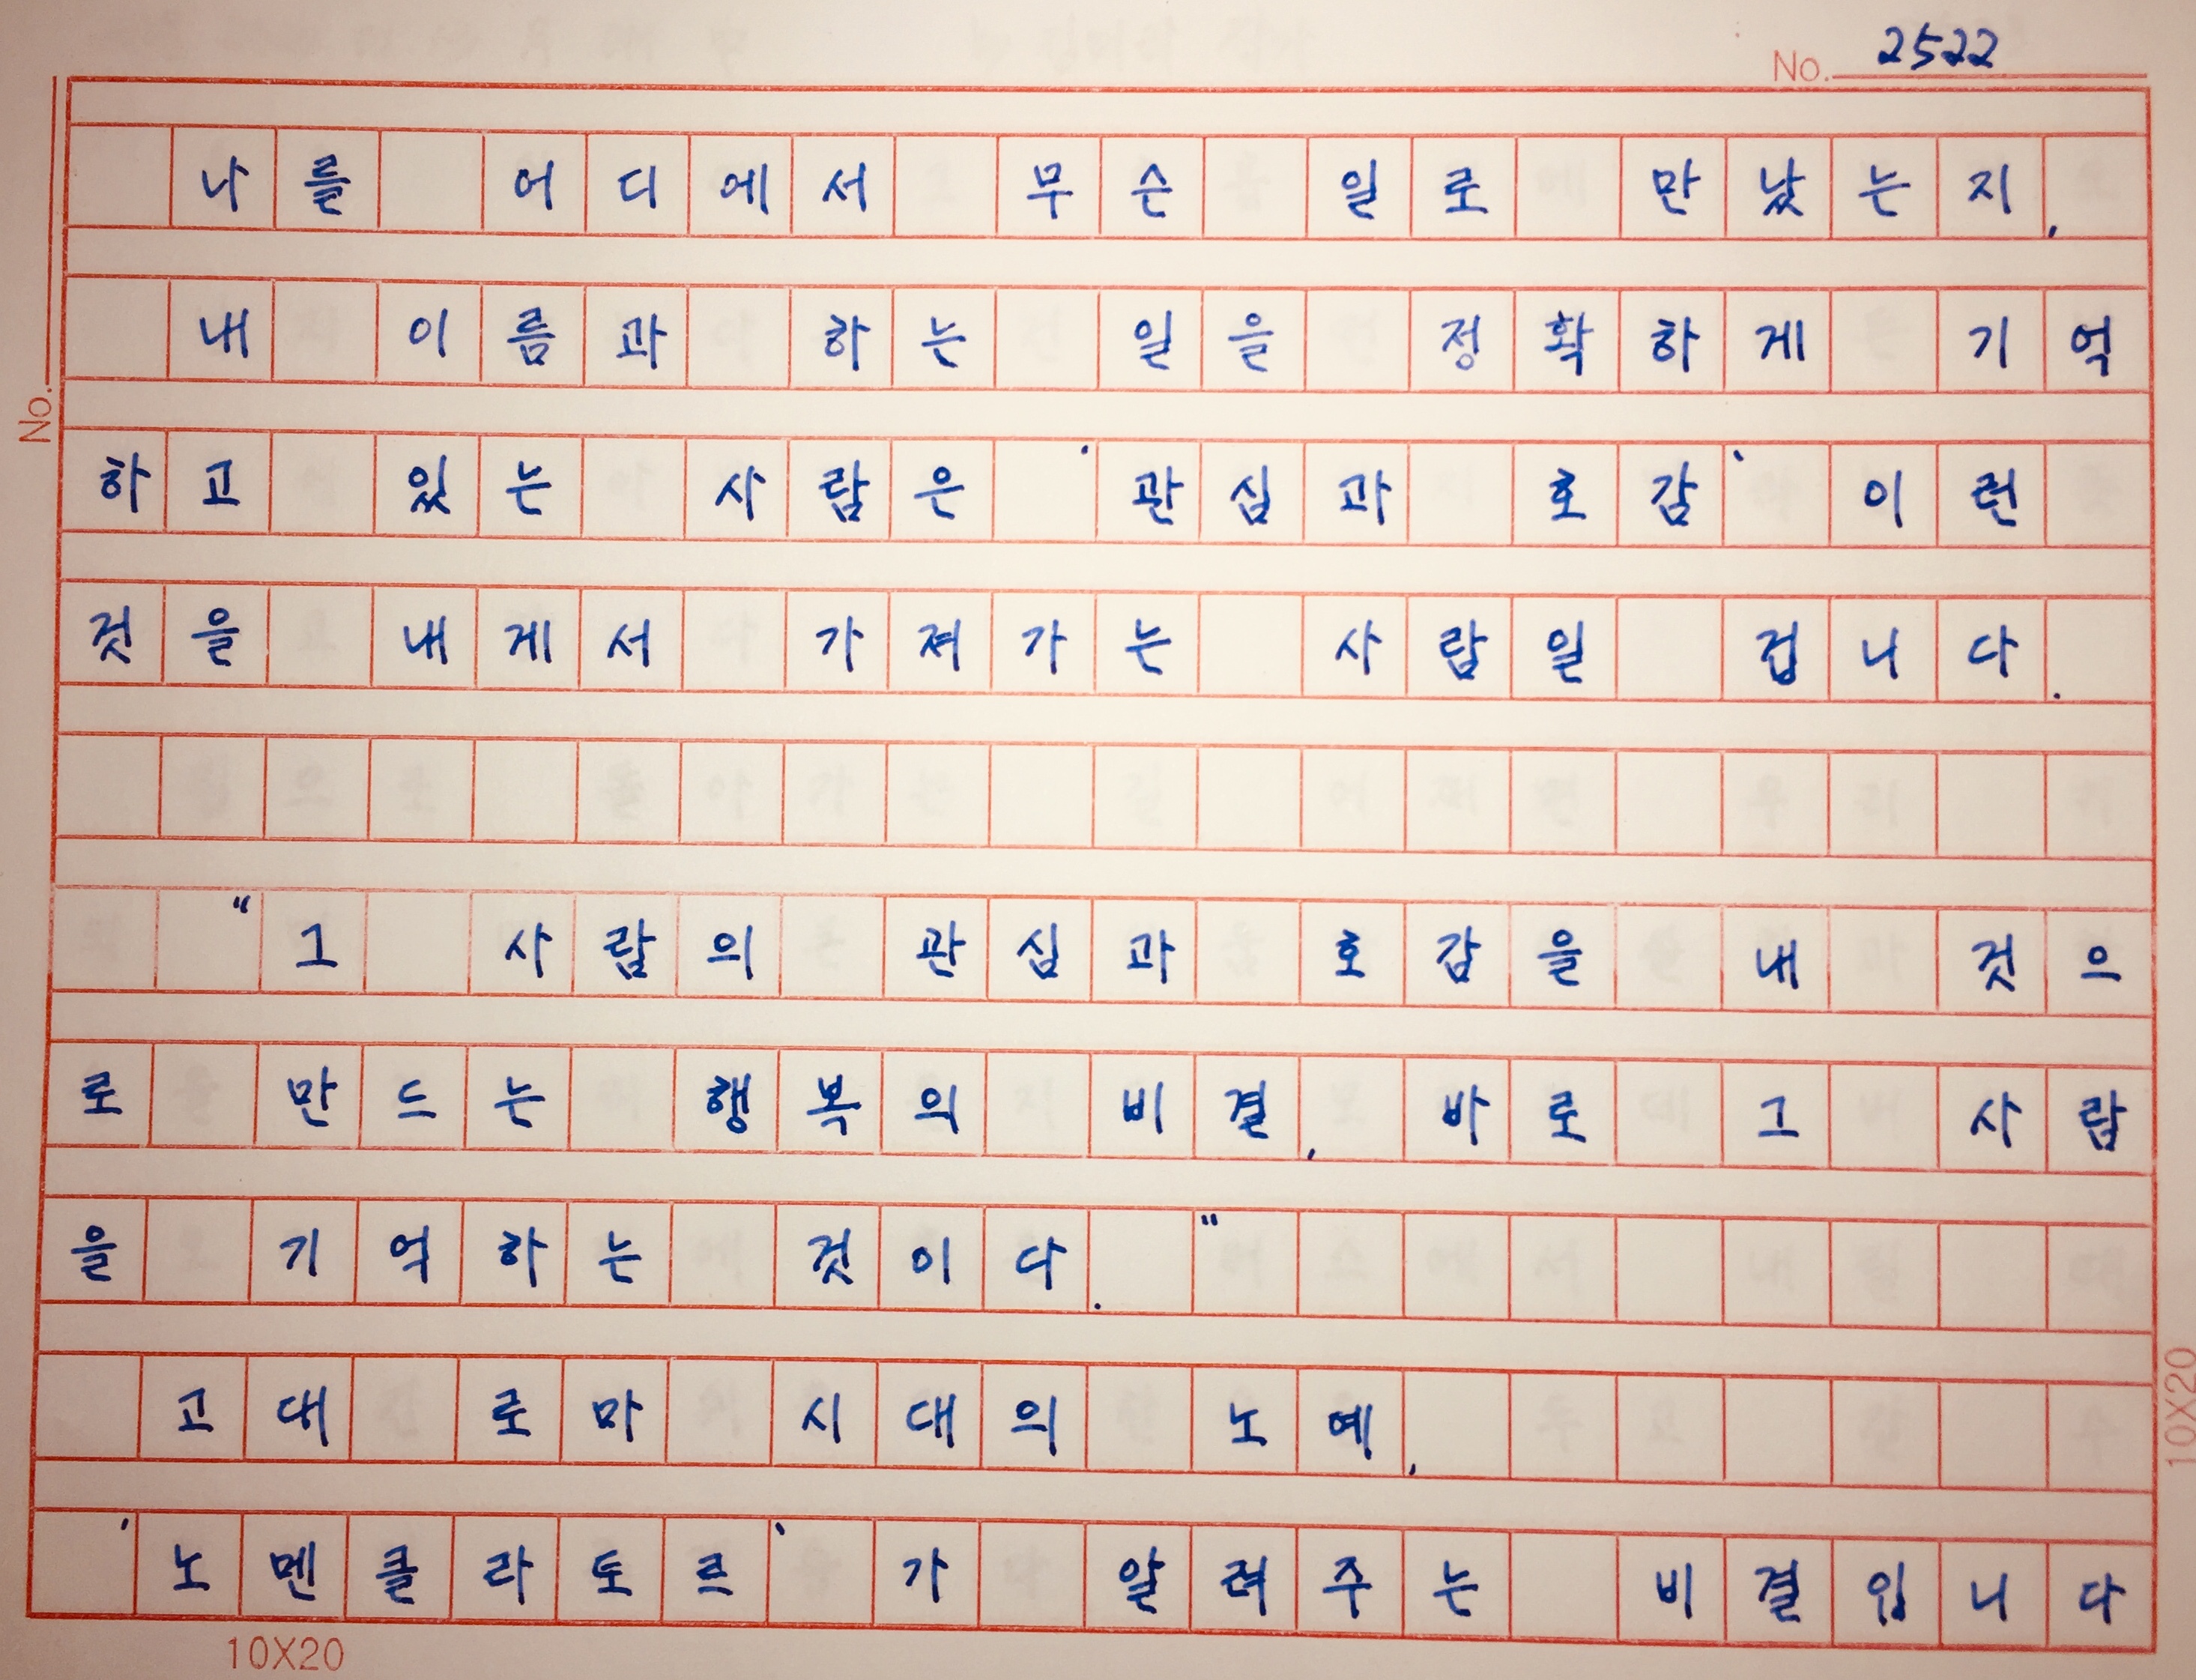 No. 2522
나를 어디에서 무슨 일로 만났는지,
내 이름과 하는 일을 정확하게 기억
하고 있는 사람은 '관심과 호감' 이런
것을 내게서 가져가는 사람일 겁니다.
"그 사람의 관심과 호감을 내 것으
로 만드는 행복의 비결, 바로 그 사람
을 기억하는 것이다."
고대 로마 시대의 노예,
'노멘클라토르'가 알려주는 비결입니다
No.
10X20
10X20